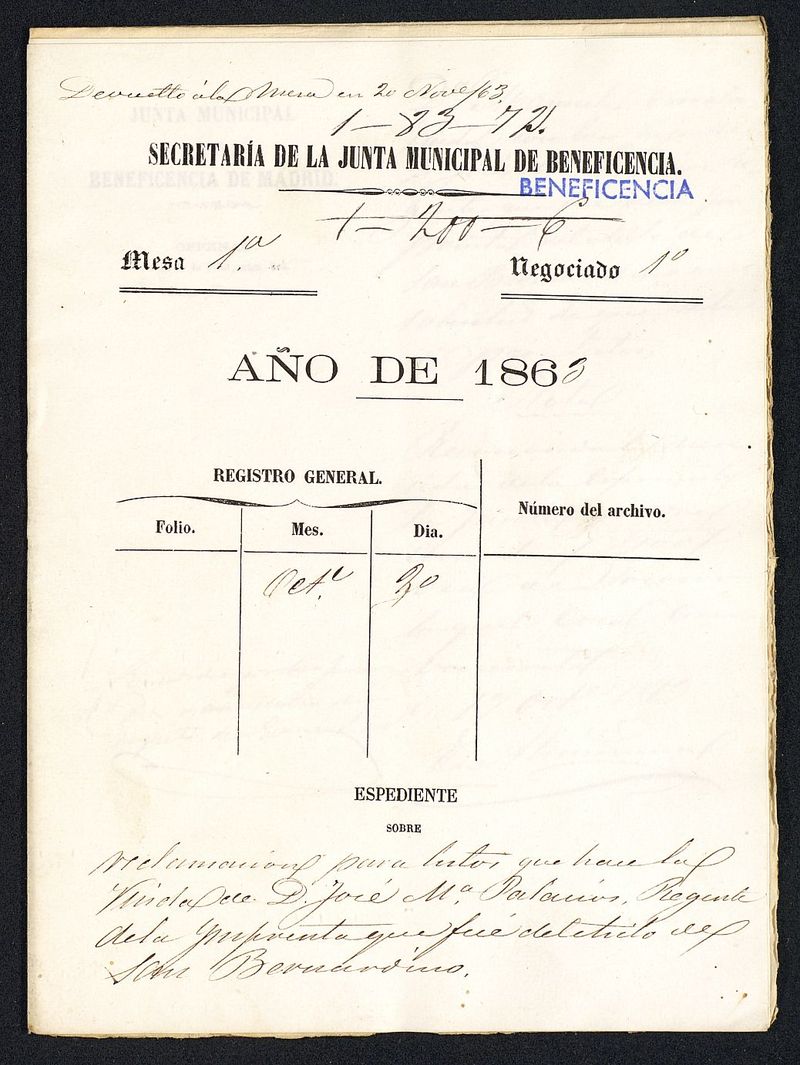 Devuelto á la Mesa en 20 Nove/63.
1-83-72.
SECRETARÍA DE LA JUNTA MUNICIPAL DE BENEFICENCIA.
BENEFICENCIA
1-200-6
Mesa 1.a
Negociado 1º
AÑO DE 1863
REGISTRO GENERAL.
Número del archivo.
Folio. Mes. Dia.
Oct.e 30
ESPEDIENTE
SOBRE
reclamacion para lutos que hace la
Viuda de D. José Mª Palacios, Regente
de la Ymprenta que fué del Asilo de
San Bernardino.